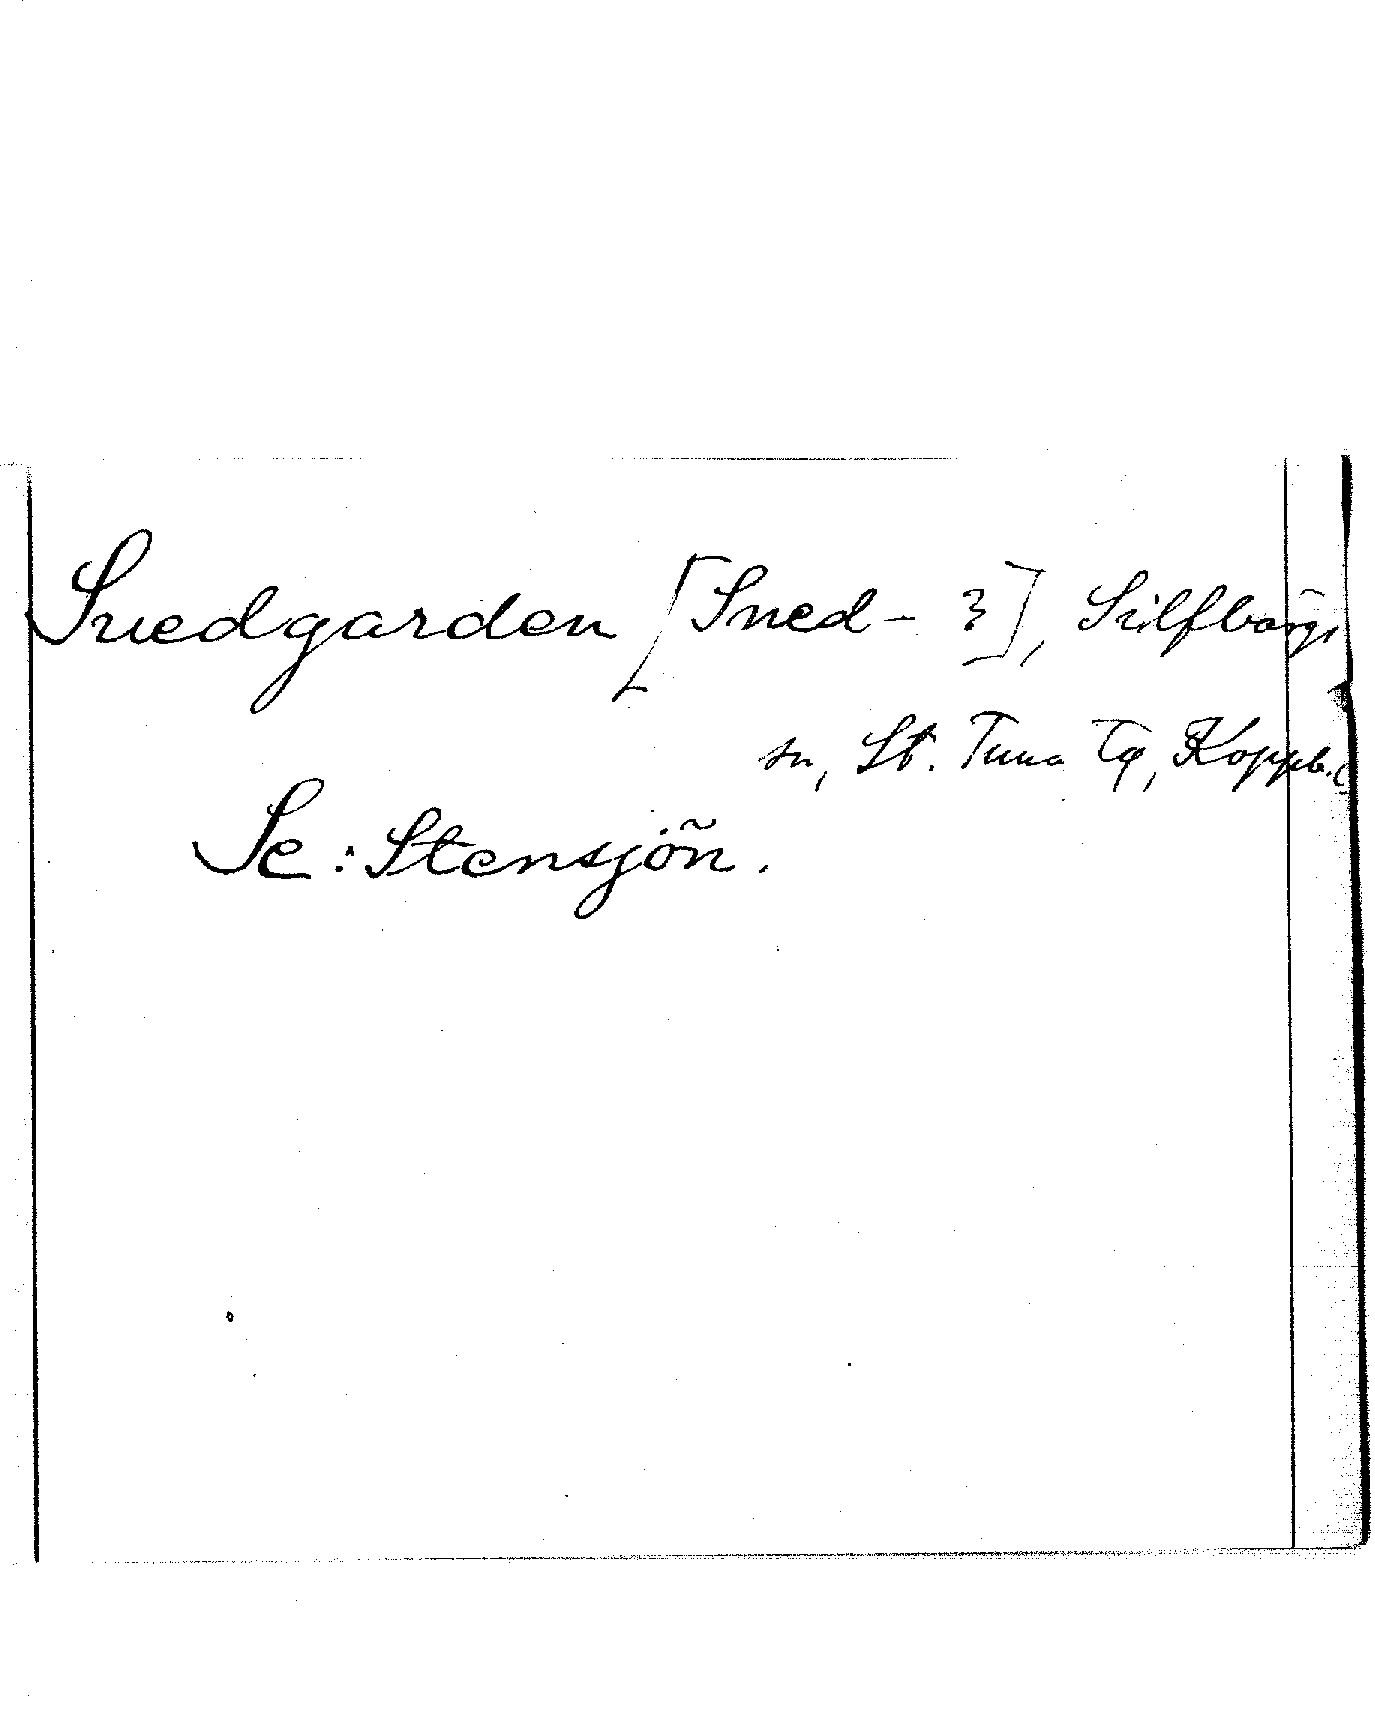 Snedgarden [Sned- ?], Silfbärgs
sn, St. Tuna Tg, Koppb.
Se: Stensjön.